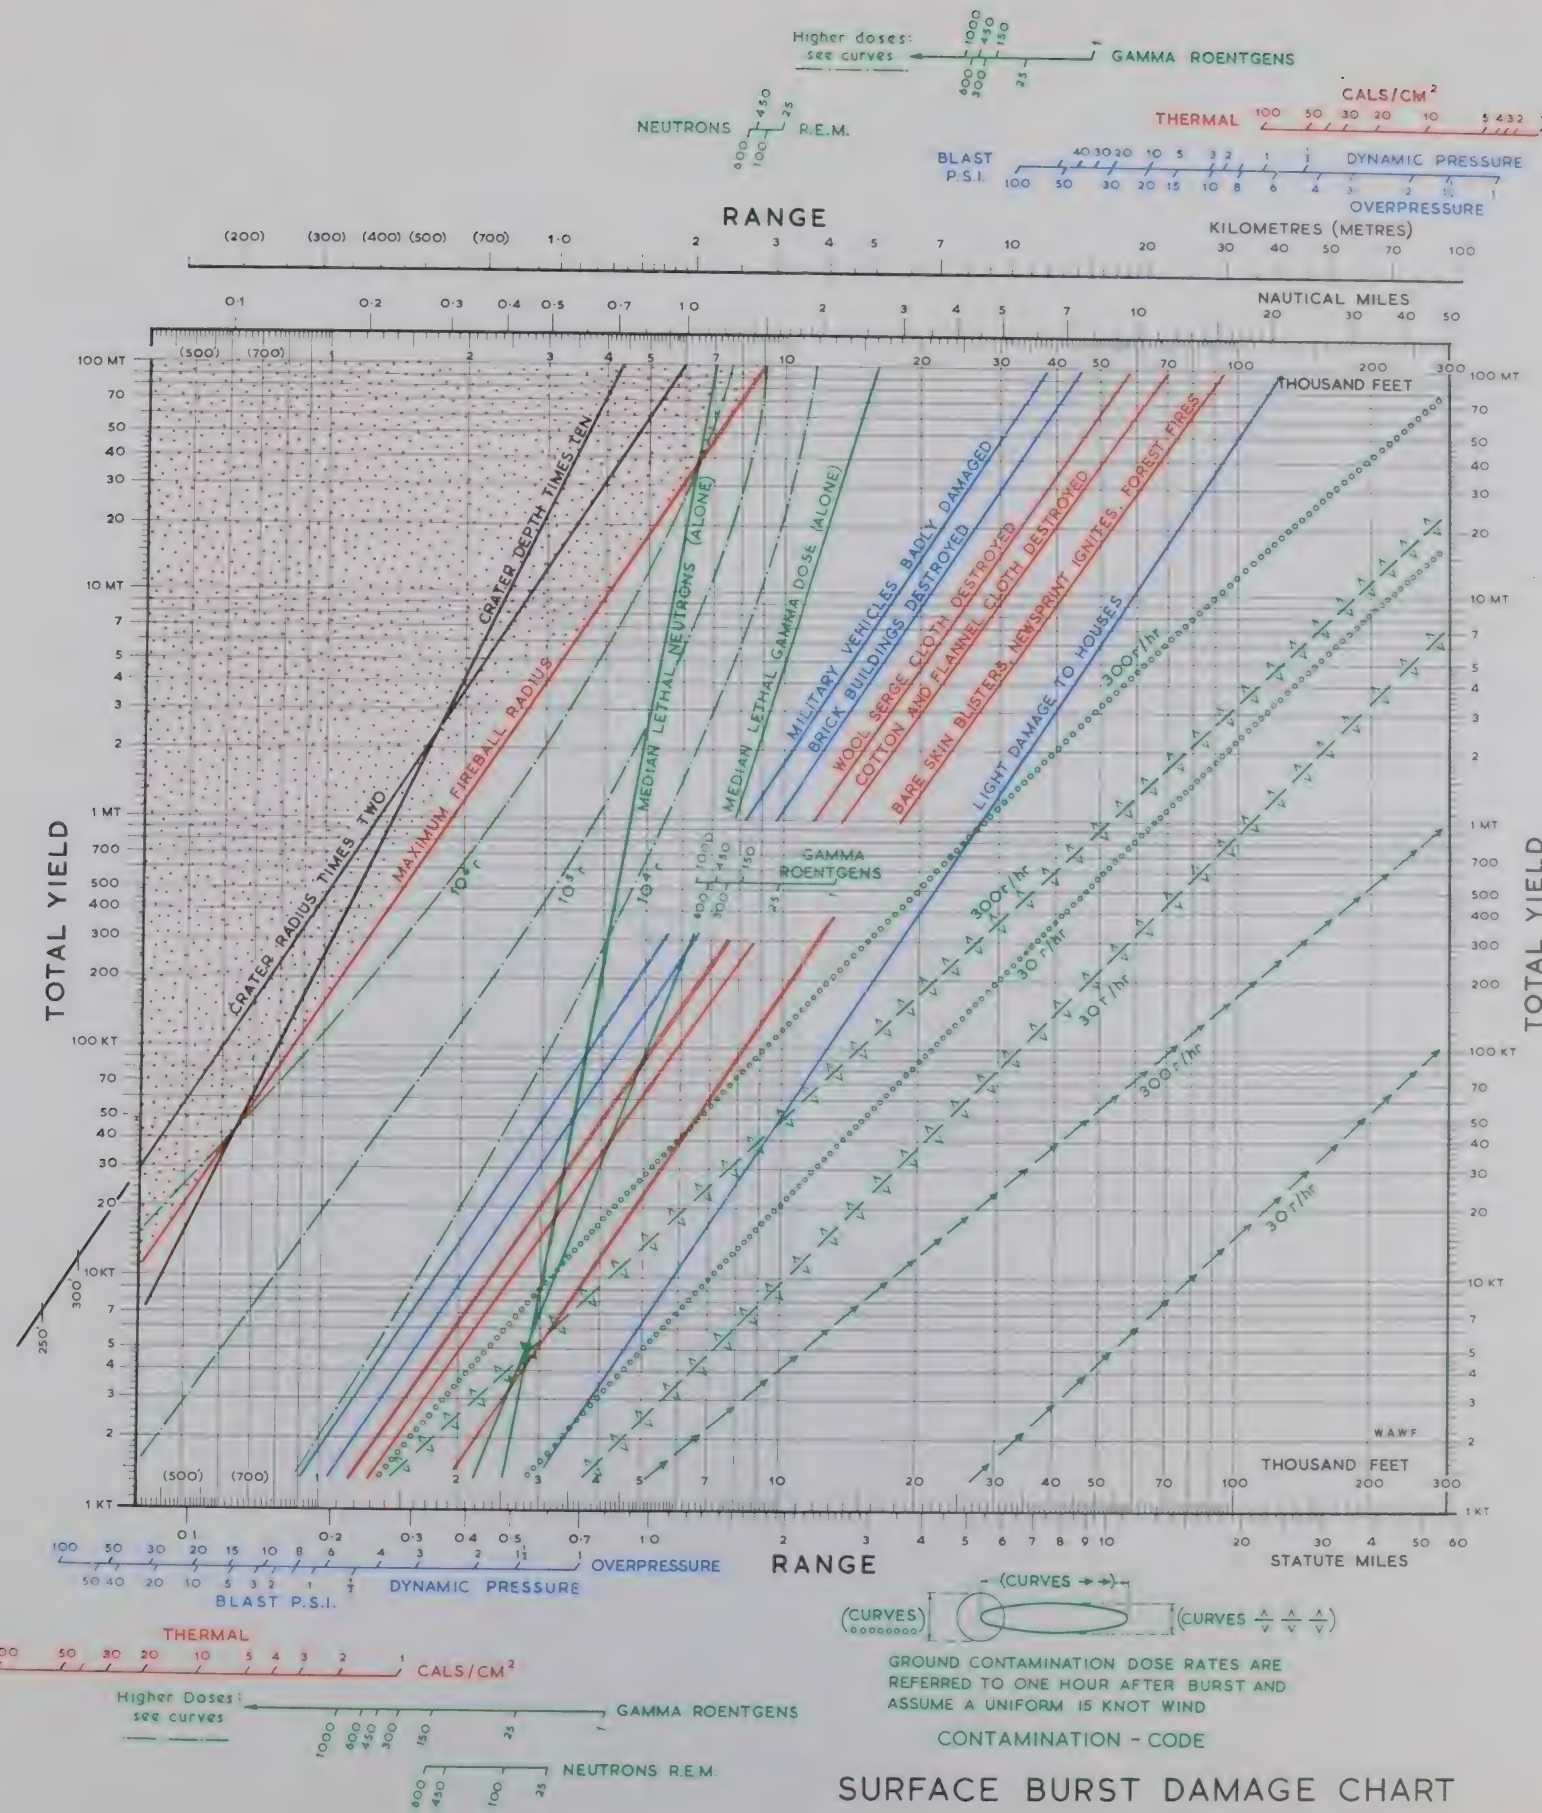 1000 450 150
Higher doses:
see curves
600 300 25 1
GAMMA ROENTGENS
450 25
NEUTRONS
R.E.M.
600 100
CALS/CM²
THERMAL
100 50 30 20 10 5 4 3 2
BLAST
P.S.I.
40 30 20 10 5 3 2 1 ½
DYNAMIC PRESSURE
100 50 30 20 15 10 8 6 4 3 2 1½ 1
OVERPRESSURE
RANGE
KILOMETRES (METRES)
(200) (300) (400) (500) (700) 1.0 2 3 4 5 7 10 20 30 40 50 70 100
NAUTICAL MILES
0.1 0.2 0.3 0.4 0.5 0.7 1.0 2 3 4 5 7 10 20 30 40 50
(500') (700') 1 2 3 4 5 7 10 20 30 40 50 70 100 200 300
THOUSAND FEET
TOTAL YIELD
100 MT
70
50
40
30
20
10 MT
7
5
4
3
2
1 MT
700
500
400
300
200
100 KT
70
50
40
30
20
10 KT
7
5
4
3
2
1 KT
300'
250'
CRATER DEPTH TIMES TEN
CRATER RADIUS TIMES TWO
MAXIMUM FIREBALL RADIUS
10⁶ r
10⁵ r
10⁴ r
MEDIAN LETHAL NEUTRONS (ALONE)
MEDIAN LETHAL GAMMA DOSE (ALONE)
MILITARY VEHICLES BADLY DAMAGED
BRICK BUILDINGS DESTROYED
WOOL SERGE CLOTH DESTROYED
COTTON AND FLANNEL CLOTH DESTROYED
BARE SKIN BLISTERS, NEWSPRINT IGNITES, FOREST FIRES
LIGHT DAMAGE TO HOUSES
600 1000 450 300 150 25 1
GAMMA
ROENTGENS
300 r/hr
300 r/hr
30 r/hr
30 r/hr
300 r/hr
30 r/hr
TOTAL YIELD
100 MT
70
50
40
30
20
10 MT
7
5
4
3
2
1 MT
700
500
400
300
200
100 KT
70
50
40
30
20
10 KT
7
5
4
3
2
1 KT
WAWF
THOUSAND FEET
(500') (700) 1 2 3 4 5 7 10 20 30 40 50 70 100 200 300
0.1 0.2 0.3 0.4 0.5 0.7 1.0 2 3 4 5 6 7 8 9 10 20 30 40 50 60
RANGE
STATUTE MILES
100 50 30 20 15 10 8 6 4 3 2 1½ 1
OVERPRESSURE
50 40 20 10 5 3 2 1 ½
DYNAMIC PRESSURE
BLAST P.S.I.
THERMAL
50 30 20 10 5 4 3 2 1
CALS/CM²
Higher Doses:
see curves
1000 600 450 300 150 25 1
GAMMA ROENTGENS
600 450 100 25
NEUTRONS R.E.M.
(CURVES →→)
(CURVES)
(CURVES )
GROUND CONTAMINATION DOSE RATES ARE
REFERRED TO ONE HOUR AFTER BURST AND
ASSUME A UNIFORM IS KNOT WIND
CONTAMINATION - CODE
SURFACE BURST DAMAGE CHART